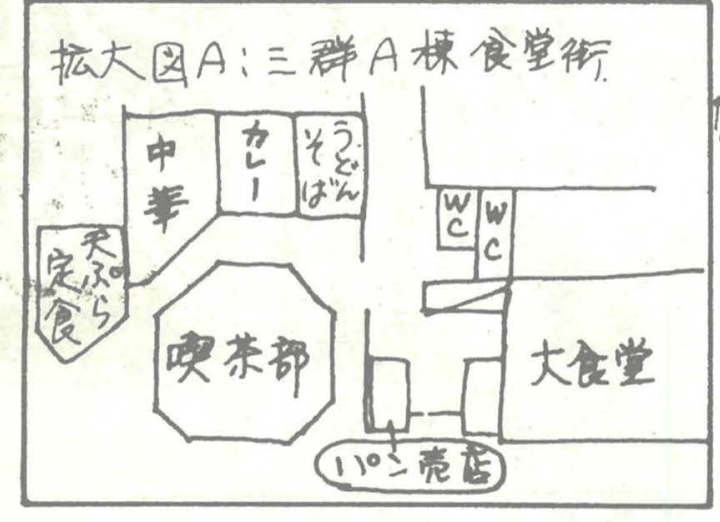 拡大図A:三群A棟食堂街
中華
カレー
うどん
そば
WC
WC
天ぷら
定食
喫茶部
大食堂
パン売店